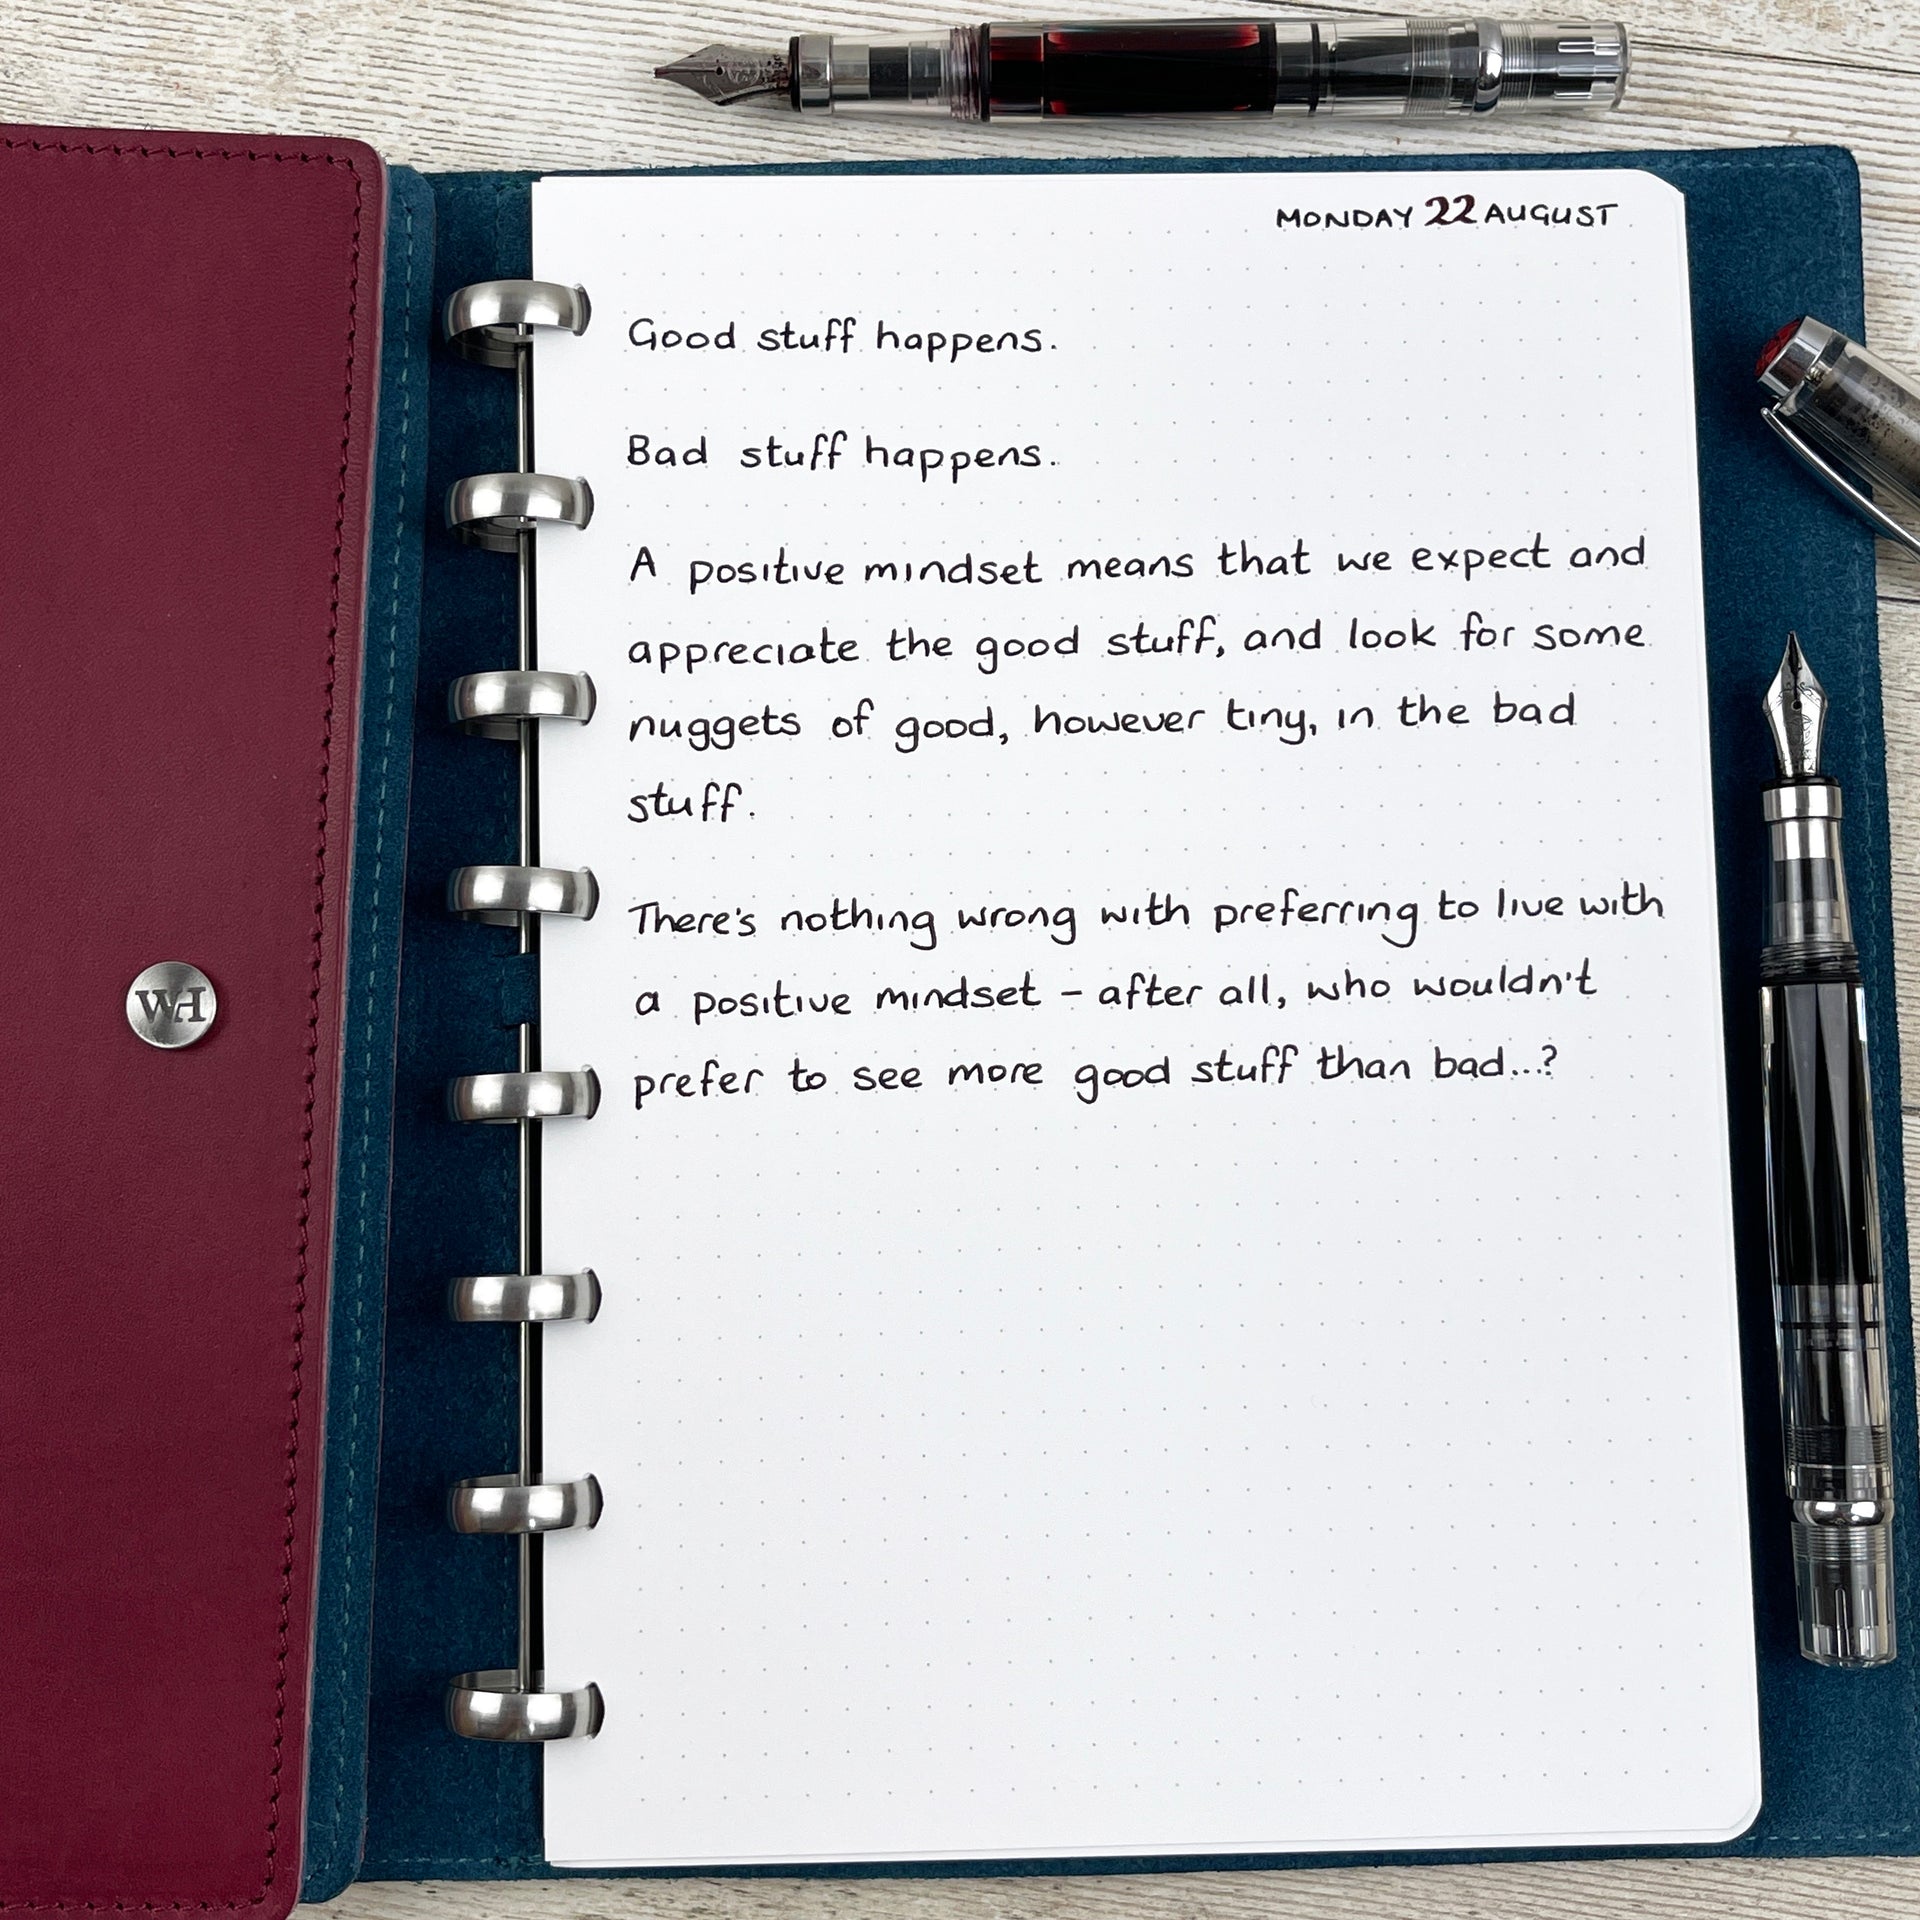 MONDAY 22 AUGUST
Good stuff happens.
Bad stuff happens.
A positive mindset means that we expect and
appreciate the good stuff, and look for some
nuggets of good, however tiny, in the bad
stuff.
There's nothing wrong with preferring to live with
a positive mindset – after all, who wouldn't
prefer to see more good stuff than bad...?
WH